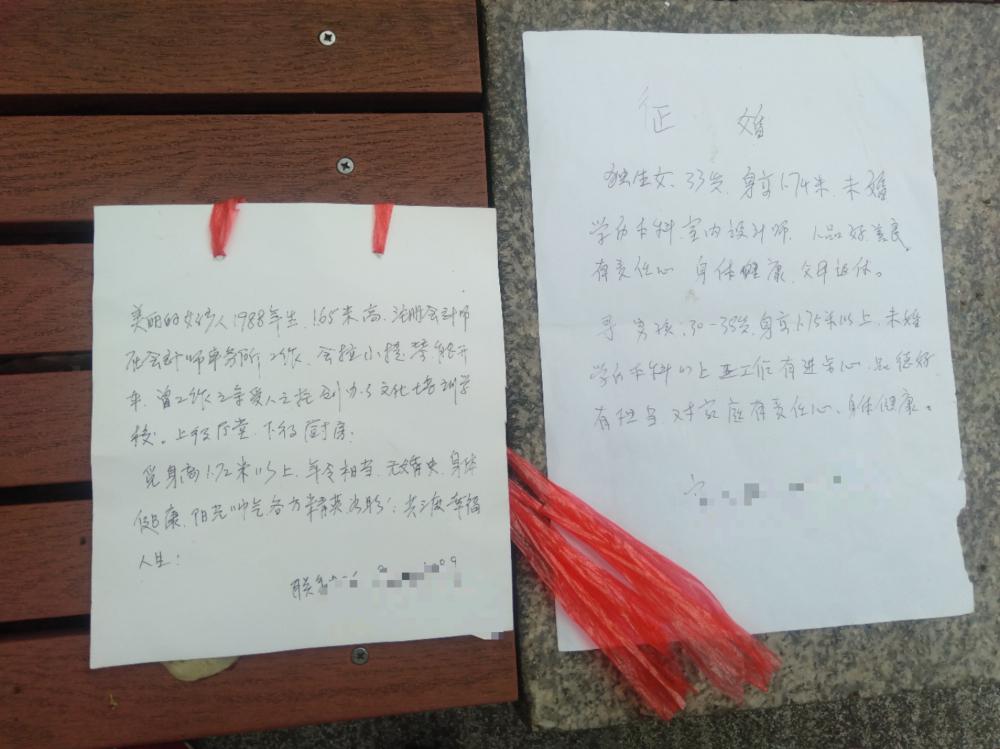 美丽的女孩人1988年生、1.65米高、注册会计师
在会计师事务所工作、会拉小提琴能开
车、曾工作之余受人之托创办了文化培训学
校。上得厅堂、下得厨房。
觅身高1.72米以上、年令相当、无婚史、身体
健康、阳光帅气各方精英为盼；共渡幸福
人生；
联系 09
征 婚
独生女、33岁、身高1.74米、未婚
学历本科、室内设计师、人品好、善良、
有责任心、身体健康、父母退休。
寻男孩：30-38岁、身高1.75米以上、未婚
学历本科以上 工作有进步心、品德好、
有担当、对家庭有责任心、身体健康。